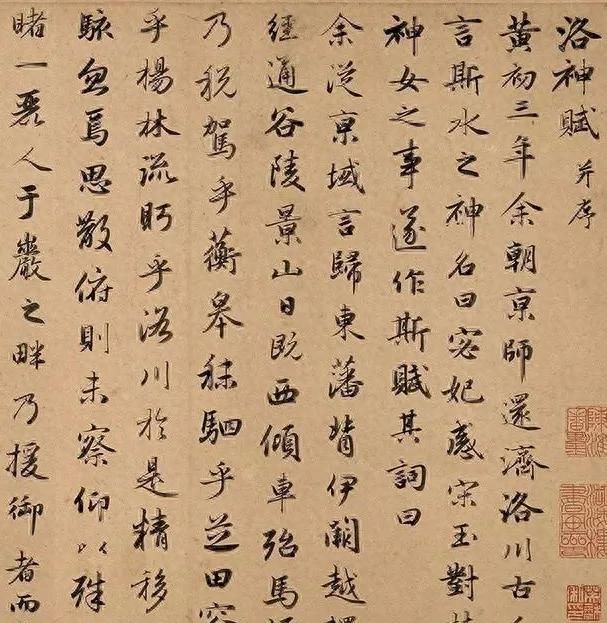 洛神賦 并序
黄初三年余朝京師還濟洛川古
言斯水之神名曰宓妃感宋玉對
神女之事遂作斯賦其詞曰
余從京域言歸東藩背伊闕越
經通谷陵景山日既西傾車殆馬
乃税駕乎蘅皋秣駟乎芝田容
乎楊林流眄乎洛川於是精移
駭忽焉思散俯則未察仰以殊
睹一麗人于巖之畔乃援御者而